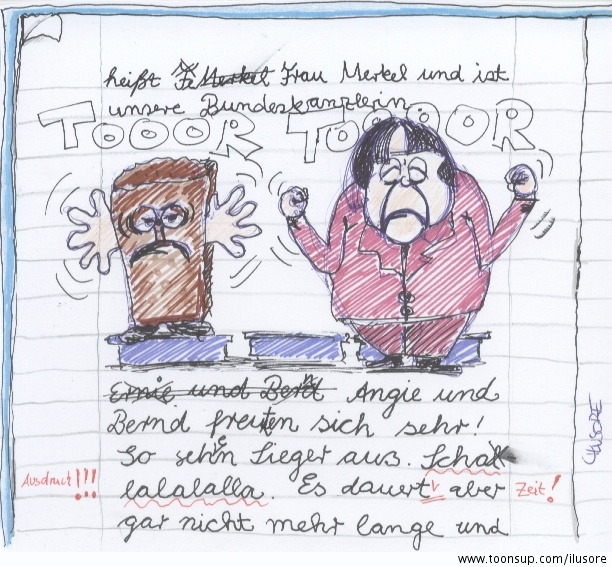 heißt F. Merkel Frau Merkel und ist
unsere Bundeskanzlerin
TOOOR TOOOOR
Ernie und Bernd Angie und
Bernd freuten sich sehr!
So sehen Sieger aus. Schal
lalalalla. Es dauert aber
gar nicht mehr lange und
Ausdruck!!!
Zeit!
ILUSORE
www.toonsup.com/ilusore